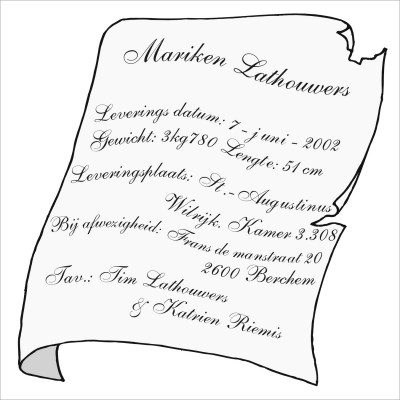 Mariken Lathouwers
Leverings datum: 7 - juni - 2002
Gewicht: 3kg780 Lengte: 51 cm
Leveringsplaats: St.-Augustinus
Wilrijk. Kamer 3.308
Bij afwezigheid: Frans de manstraat 20
2600 Berchem
Tav.: Tim Lathouwers
& Katrien Riemis